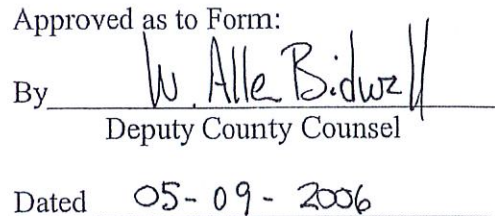 Approved as to Form:
By W. Alle Bidwell
Deputy County Counsel
Dated 05-09-2006